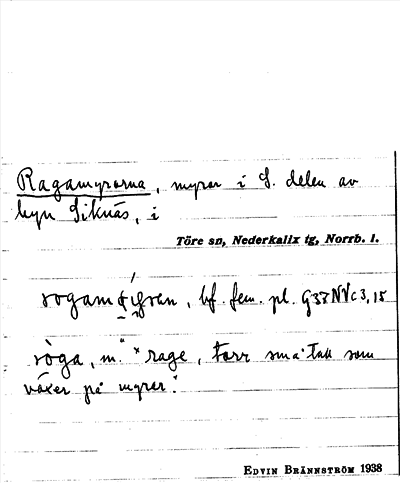 Ragamyrorna, myror i S. delen av
byn Siknäs, i
Töre sn, Nederkalix tg, Norrb. l.
bf. fem. pl. G37NVc3,15
råga, m. "*rage, torr små tall som
växer på myror."
EDVIN BRÄNNSTRÖM 1938